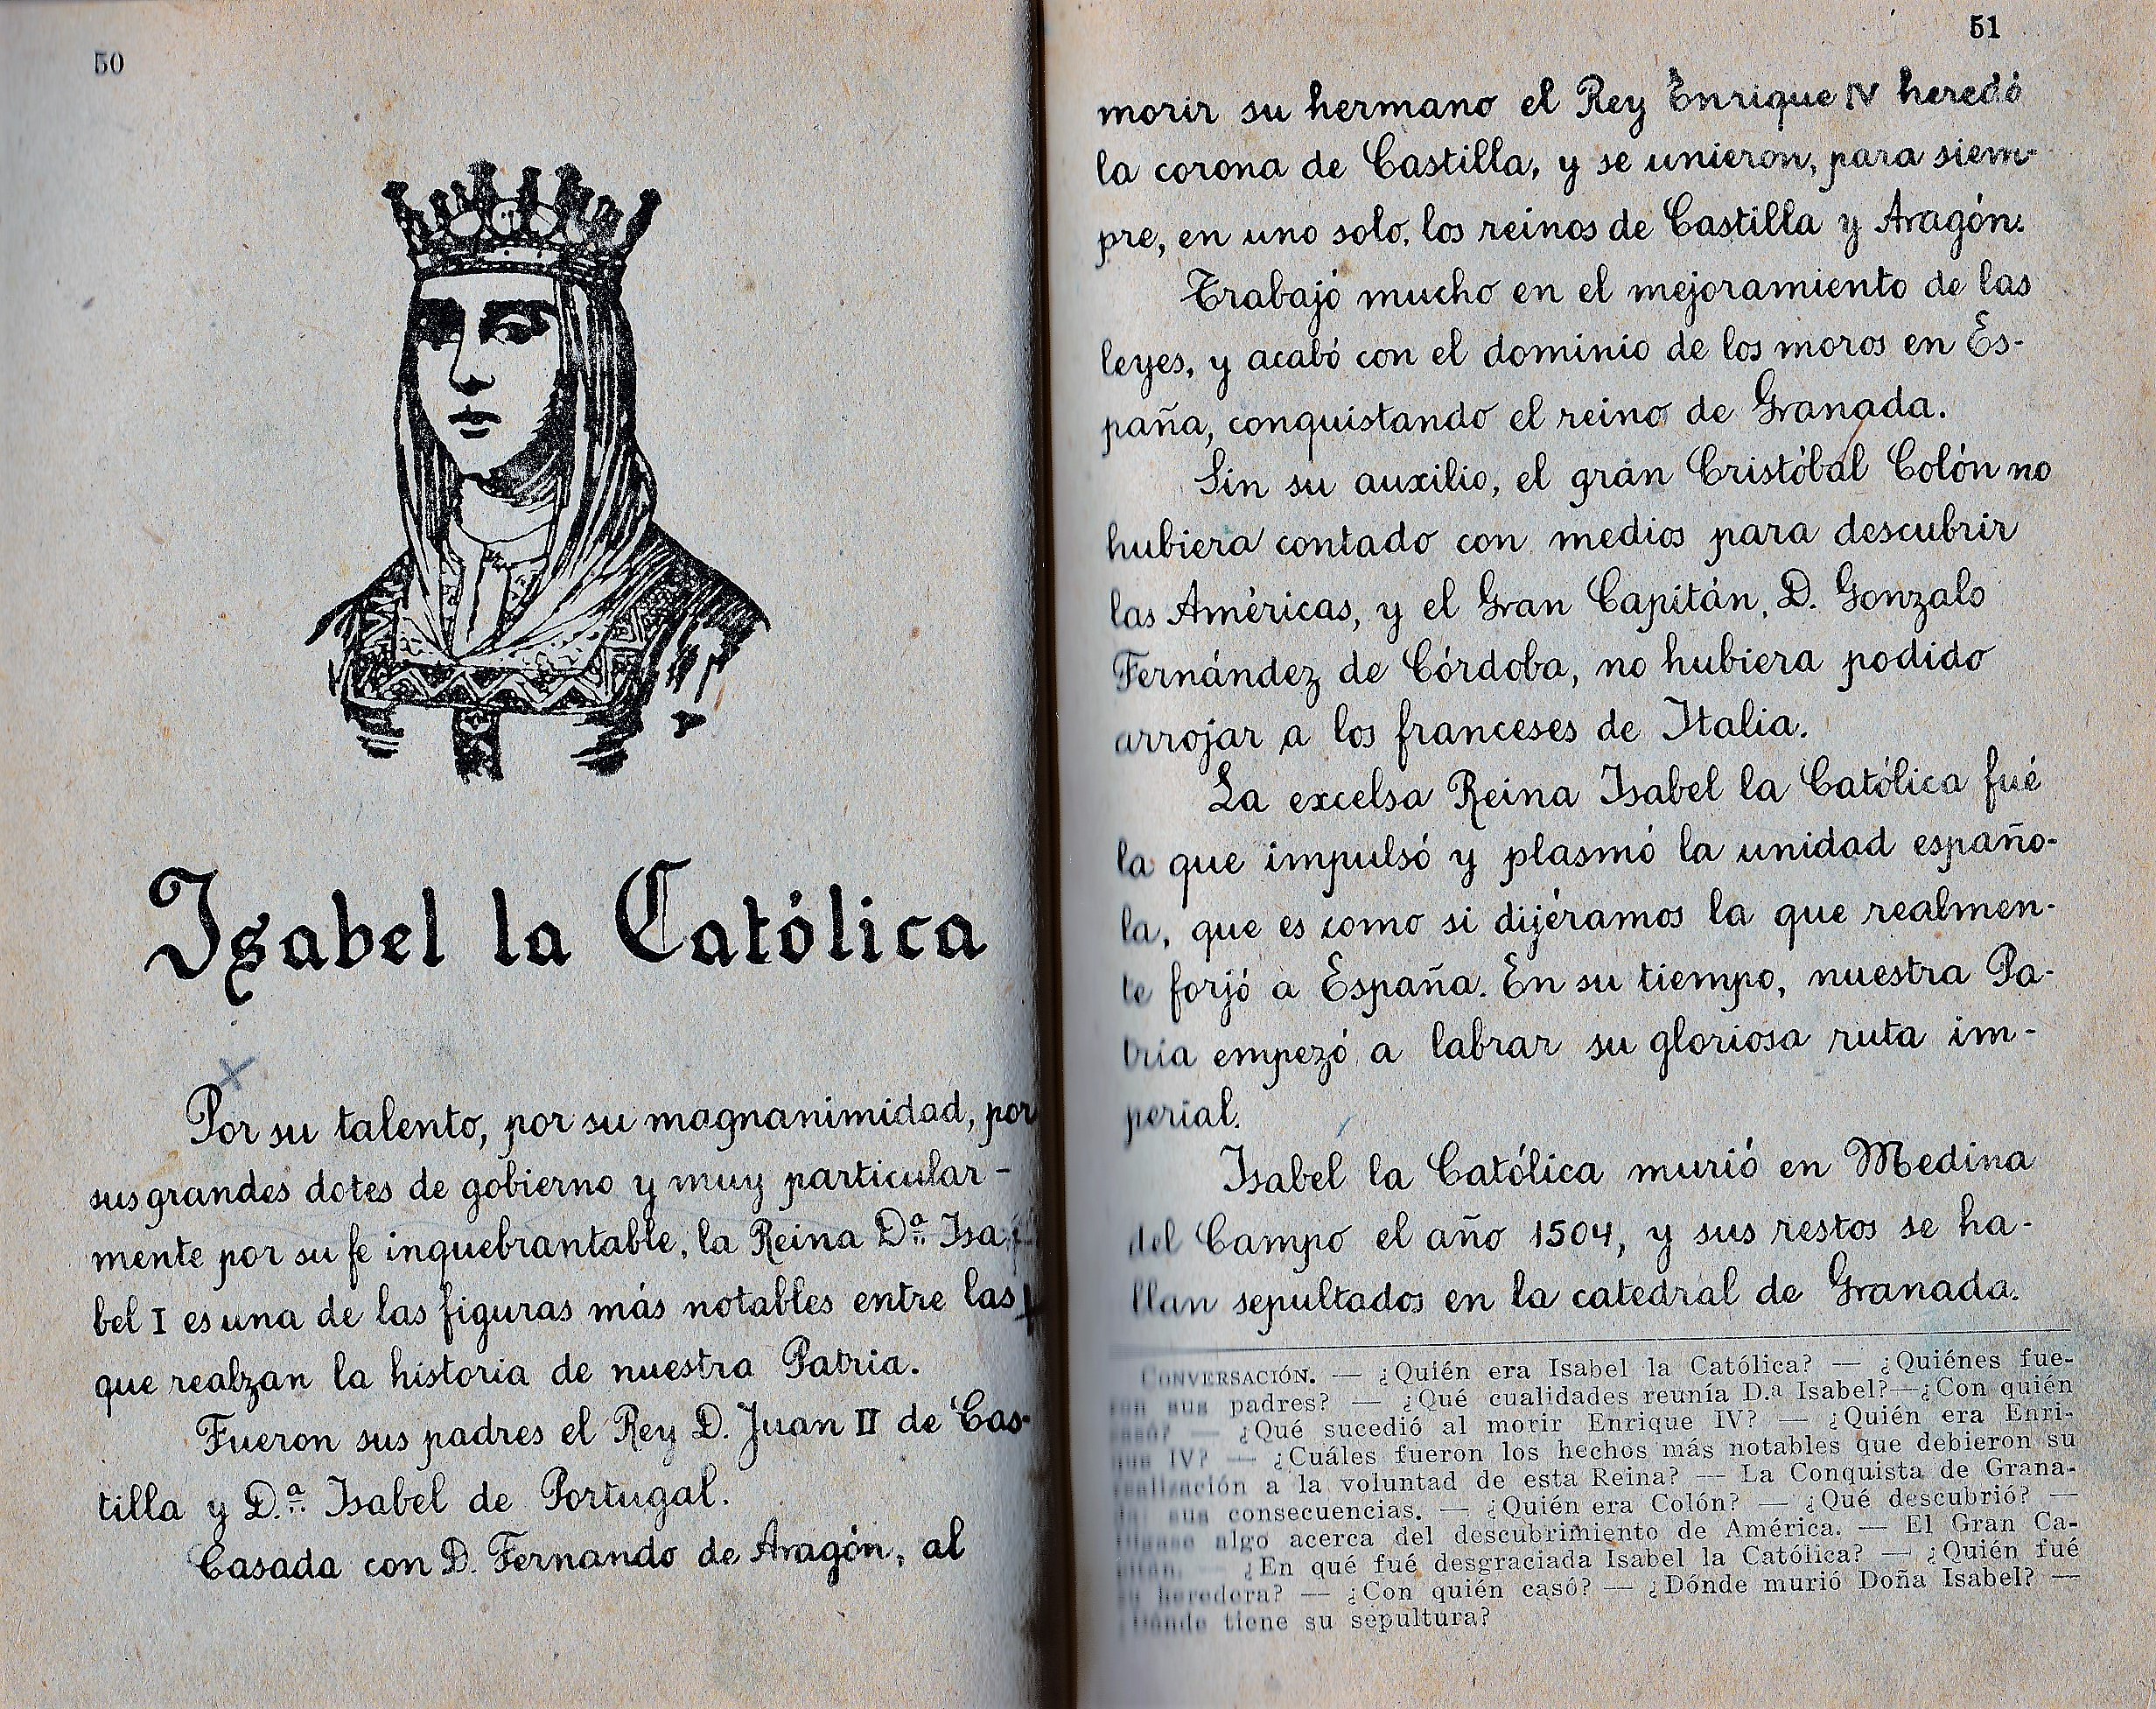 50
Isabel la Católica
Por su talento, por su magnanimidad, por
sus grandes dotes de gobierno y muy particular-
mente por su fe inquebrantable, la Reina D.ª Isa-
bel I es una de las figuras más notables entre las
que realzan la historia de nuestra Patria.
Fueron sus padres el Rey D. Juan II de Cas-
tilla y D.ª Isabel de Portugal.
Casada con D. Fernando de Aragón, al
51
morir su hermano el Rey Enrique IV heredó
la corona de Castilla, y se unieron, para siem-
pre, en uno solo, los reinos de Castilla y Aragón.
Trabajó mucho en el mejoramiento de las
leyes, y acabó con el dominio de los moros en Es-
paña, conquistando el reino de Granada.
Sin su auxilio, el gran Cristóbal Colón no
hubiera contado con medios para descubrir
las Américas, y el Gran Capitán, D. Gonzalo
Fernández de Córdoba, no hubiera podido
arrojar a los franceses de Italia.
La excelsa Reina Isabel la Católica fué
la que impulsó y plasmó la unidad españo-
la, que es como si dijéramos la que realmen-
te forjó a España. En su tiempo, nuestra Pa-
tria empezó a labrar su gloriosa ruta im-
perial.
Isabel la Católica murió en Medina
del Campo el año 1504, y sus restos se ha-
llan sepultados en la catedral de Granada.
CONVERSACIÓN. — ¿Quién era Isabel la Católica? — ¿Quiénes fue-
ron sus padres? — ¿Qué cualidades reunía D.ª Isabel?—¿Con quién
casó? — ¿Qué sucedió al morir Enrique IV? — ¿Quién era Enri-
que IV? — ¿Cuáles fueron los hechos más notables que debieron su
realización a la voluntad de esta Reina? — La Conquista de Grana-
da: sus consecuencias. — ¿Quién era Colón? — ¿Qué descubrió? —
algo acerca del descubrimiento de América. — El Gran Ca-
pitán. — ¿En qué fué desgraciada Isabel la Católica? — ¿Quién fué
su heredera? — ¿Con quién casó? — ¿Dónde murió Doña Isabel? —
¿Dónde tiene su sepultura?